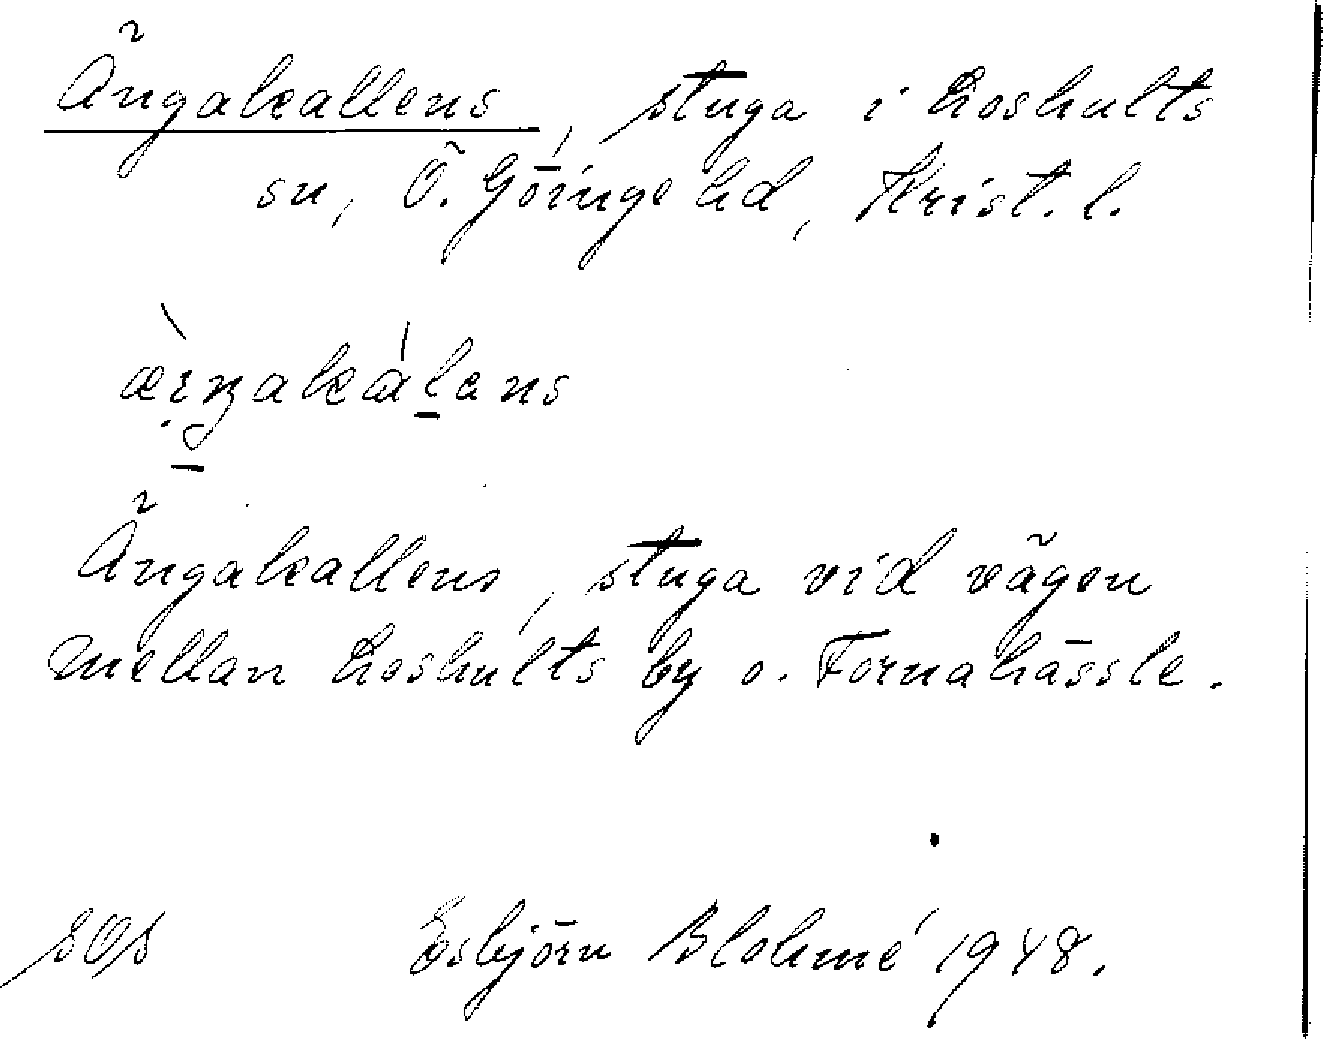 Ängakallens, stuga i Loshults
sn, Ö. Göinge hd, Krist. l.
Ängakallens, stuga vid vägen
mellan Loshults by o. Tornahässle.
Esbjörn Blohmé 1948.